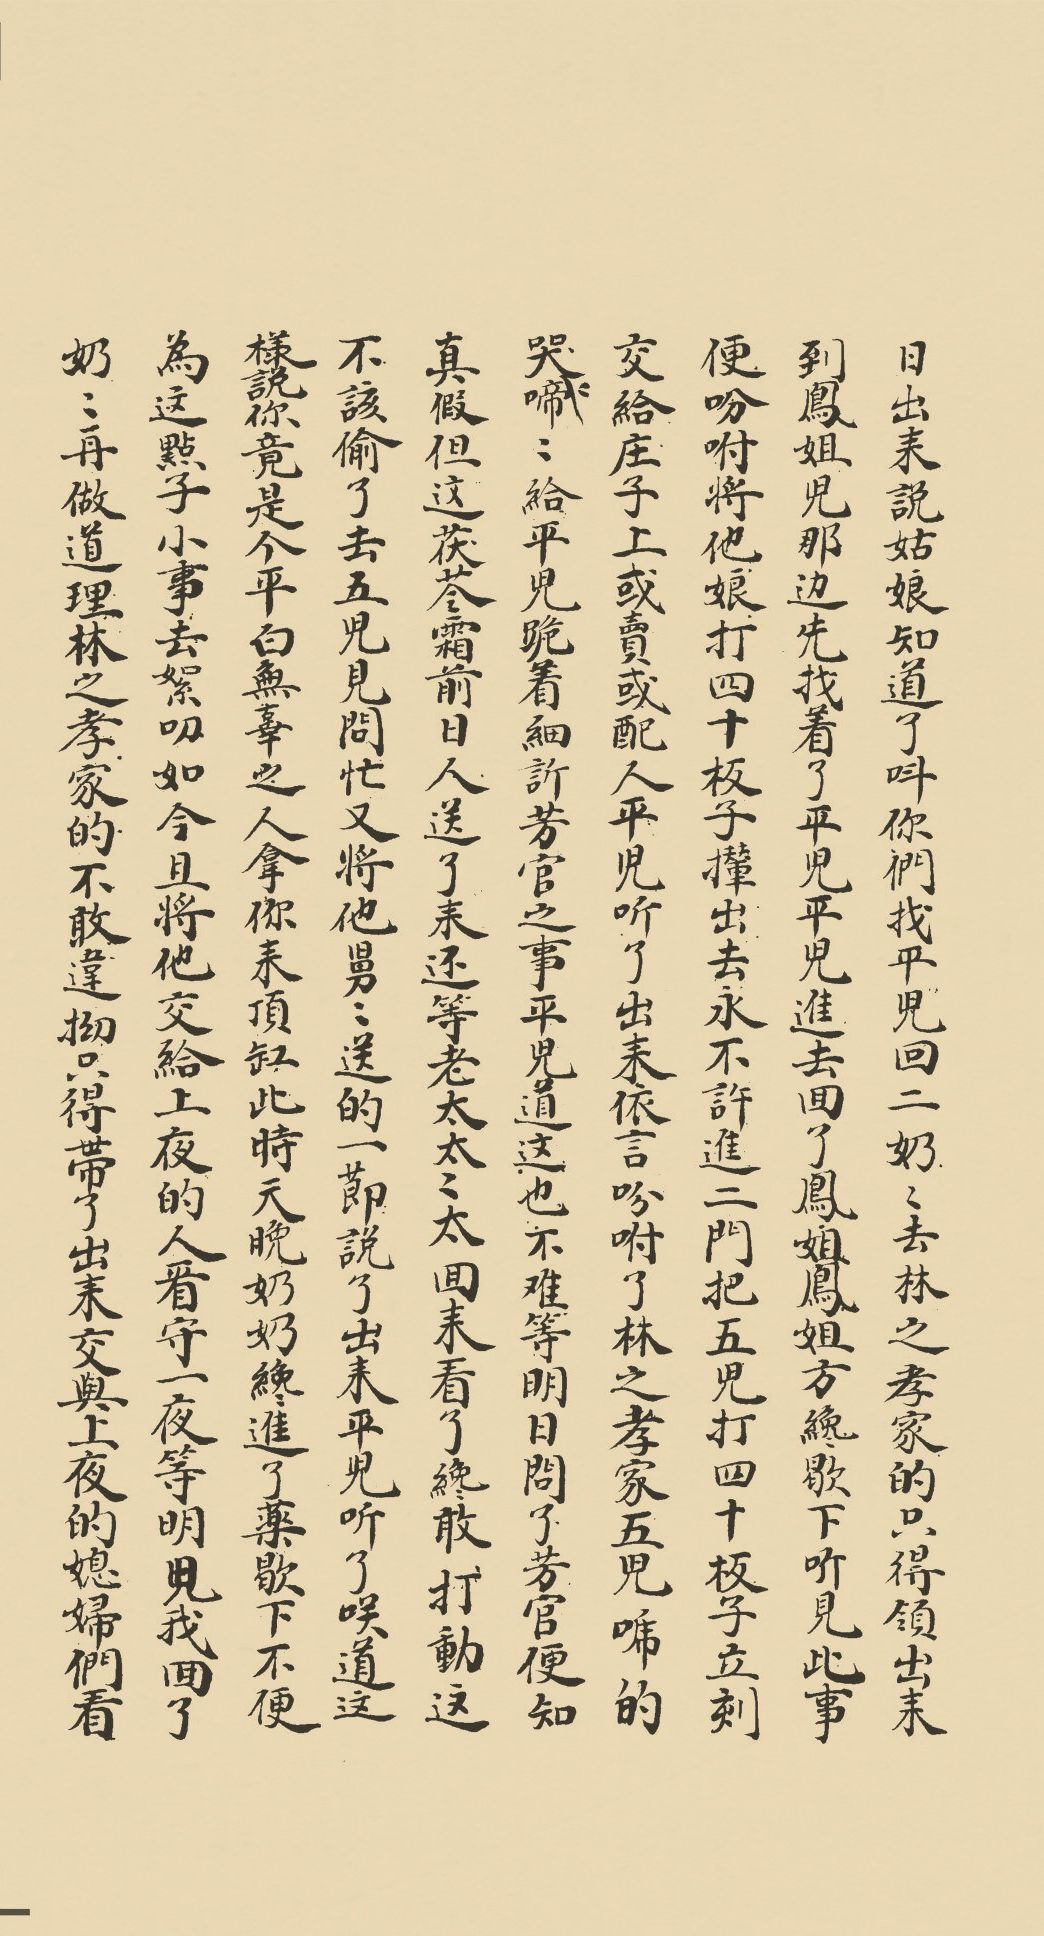 日出来説姑娘知道了呌你們找平児回二奶〻去林之孝家的只得領出来
到鳳姐児那边先找着了平児平児進去回了鳳姐鳳姐方纔歇下听見此事
便吩咐將他娘打四十板子攆出去永不許進二門把五児打四十板子立刻
交給庄子上或賣或配人平児听了出来依言吩咐了林之孝家五児唬的
哭啼〻給平児跪着細訴芳官之事平児道这也不难等明日問了芳官便知
真假但这茯苓霜前日人送了来还等老太太〻太回来看了纔敢打動这
不該偷了去五児見問忙又將他舅〻送的一節説了出来平児听了咲道这
様説你竟是个平白無辜之人拿你来頂缸此時天晚奶奶纔進了藥歇下不便
為这點子小事去絮叨如今且將他交給上夜的人看守一夜等明児我回了
奶〻再做道理林之孝家的不敢違拗只得帶了出来交與上夜的媳婦們看